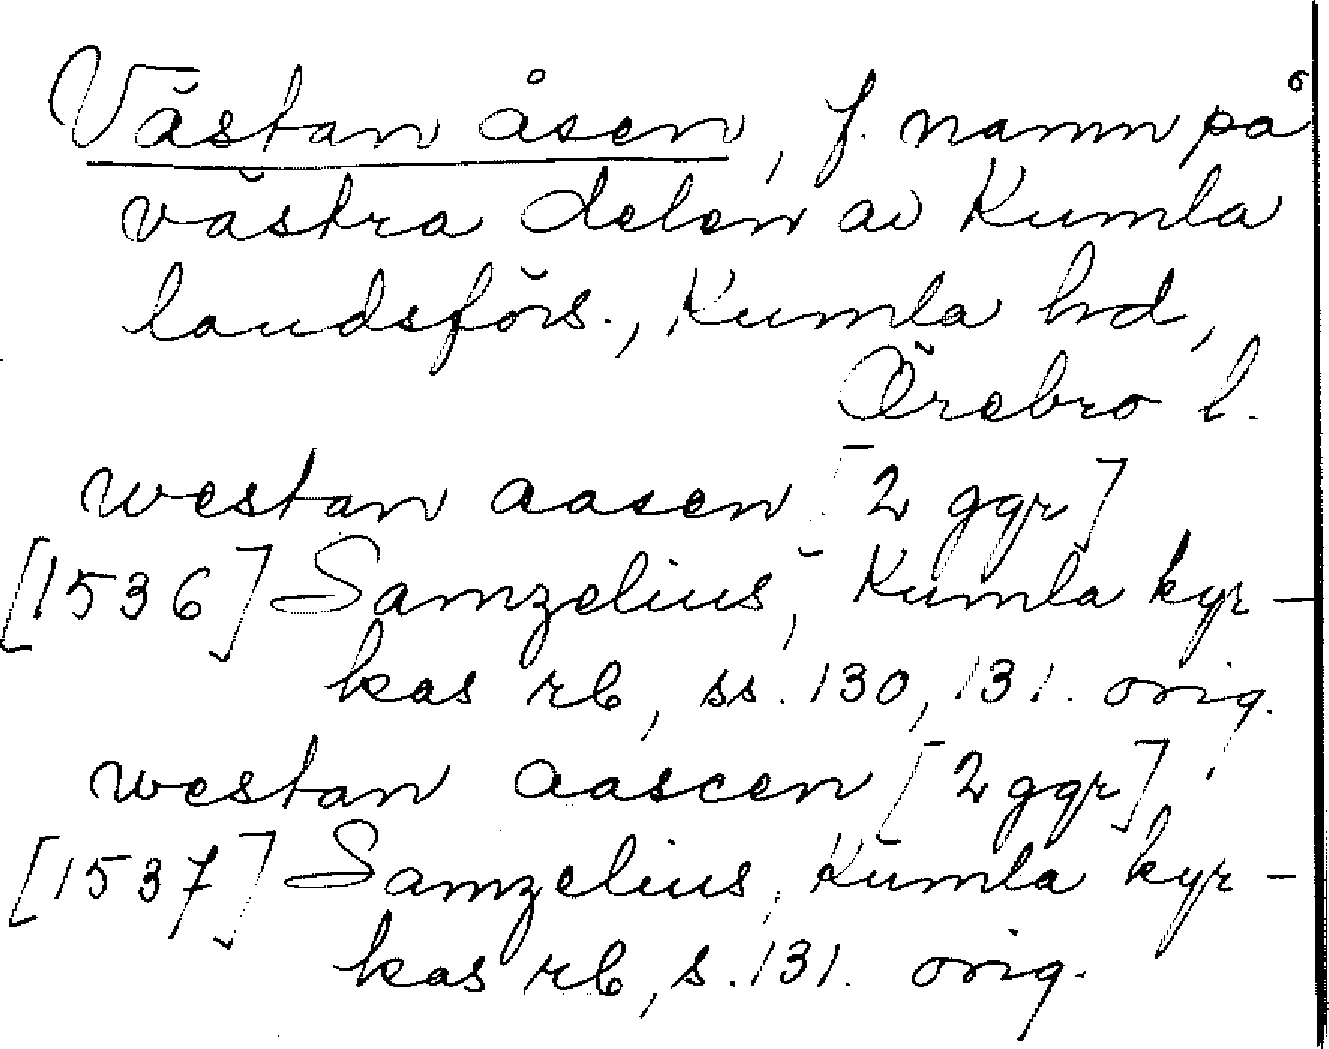 Västan åsen, f. namn på
västra delen av Kumla
landsförs., Kumla hd,
Örebro l.
westan aasen [2 ggr]
[1536] Samzelius, Kumla kyr-
kas rb, ss. 130, 131. orig.
westan aascen [2 ggr]
[1537] Samzelius, Kumla kyr-
kas rb, s. 131. orig.